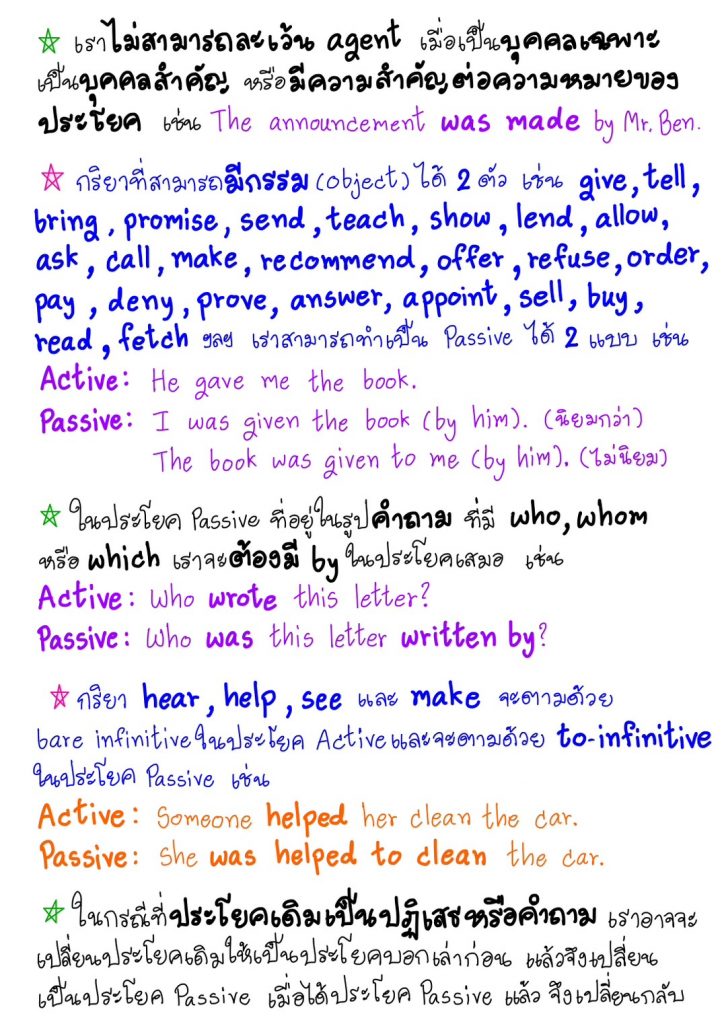 ☆ เราไม่สามารถละเว้น agent เมื่อเป็นบุคคลเฉพาะ
เป็นบุคคลสำคัญ หรือมีความสำคัญต่อความหมายของ
ประโยค เช่น The announcement was made by Mr. Ben.
☆ กริยาที่สามารถมีกรรม (object) ได้ 2 ตัว เช่น give, tell,
bring, promise, send, teach, show, lend, allow,
ask, call, make, recommend, offer, refuse, order,
pay, deny, prove, answer, appoint, sell, buy,
read, fetch ฯลฯ เราสามารถทำเป็น Passive ได้ 2 แบบ เช่น
Active: He gave me the book.
Passive: I was given the book (by him). (นิยมกว่า)
The book was given to me (by him). (ไม่นิยม)
☆ ในประโยค Passive ที่อยู่ในรูปคำถาม ที่มี who, whom
หรือ which เราจะต้องมี by ในประโยคเสมอ เช่น
Active: Who wrote this letter?
Passive: Who was this letter written by?
☆ กริยา hear, help, see และ make จะตามด้วย
bare infinitive ในประโยค Active และจะตามด้วย to-infinitive
ในประโยค Passive เช่น
Active: Someone helped her clean the car.
Passive: She was helped to clean the car.
☆ ในกรณีที่ประโยคเดิมเป็นปฏิเสธหรือคำถาม เราอาจจะ
เปลี่ยนประโยคเดิมให้เป็นประโยคบอกเล่าก่อน แล้วจึงเปลี่ยน
เป็นประโยค Passive เมื่อได้ประโยค Passive แล้ว จึงเปลี่ยนกลับ